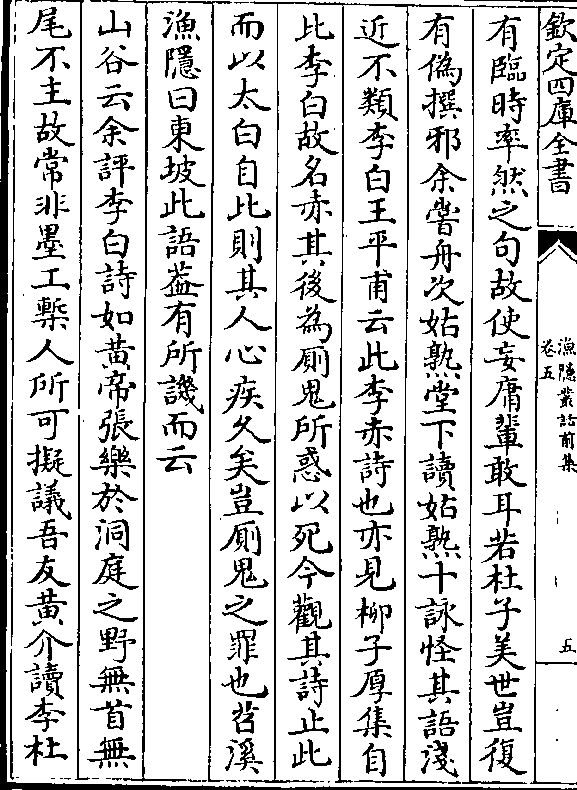 欽定四庫全書
漁隱叢話前集
卷五
五
有臨時率然之句故使妄庸輩敢耳若杜子美世豈復
有偽撰邪余嘗舟次姑熟堂下讀姑熟十詠怪其語淺
近不類李白王平甫云此李赤詩也亦見柳子厚集自
比李白故名赤其後為厠鬼所惑以死今觀其詩止此
而以太白自比則其人心疾久矣豈厠鬼之罪也苕溪
漁隱曰東坡此語葢有所譏而云
山谷云余評李白詩如黄帝張樂於洞庭之野無首無
尾不主故常非墨工槧人所可擬議吾友黄介讀李杜